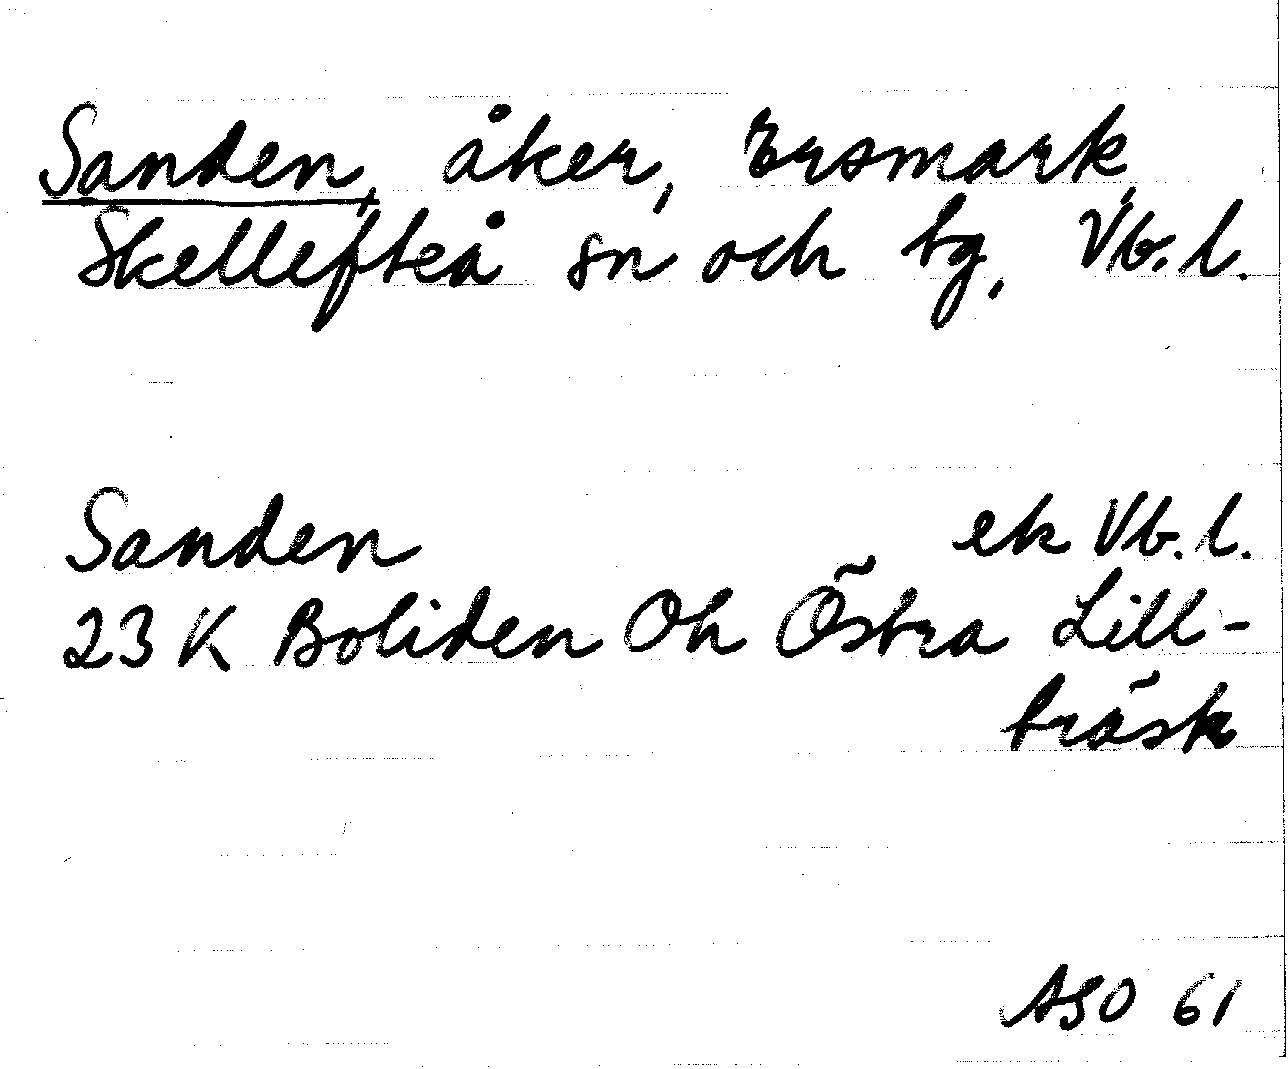 Sanden, åker, Ersmark,
Skellefteå sn och tg, Vb. l.
Sanden ek Vb. l.
23 K Boliden Oh Östra Lill-
träsk
ASO 61